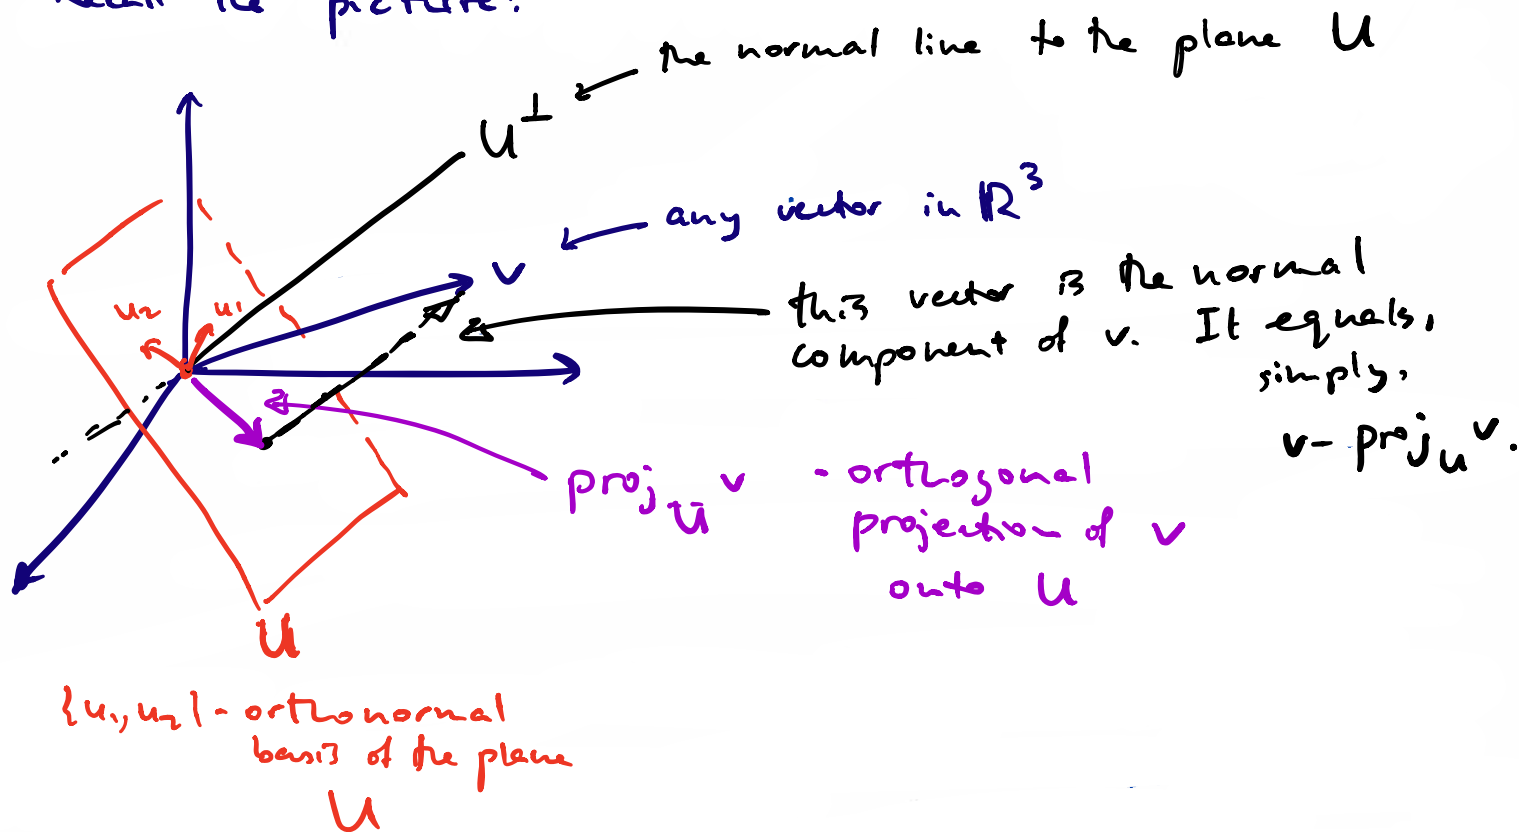 Recall the picture:
the normal line to the plane U
U⊥
any vector in ℝ³
v
u₂ u₁
this vector is the normal
component of v. It equals,
simply,
v - proj_U v.
proj_U v - orthogonal
projection of v
onto U
U
{u₁, u₂} - orthonormal
basis of the plane
U